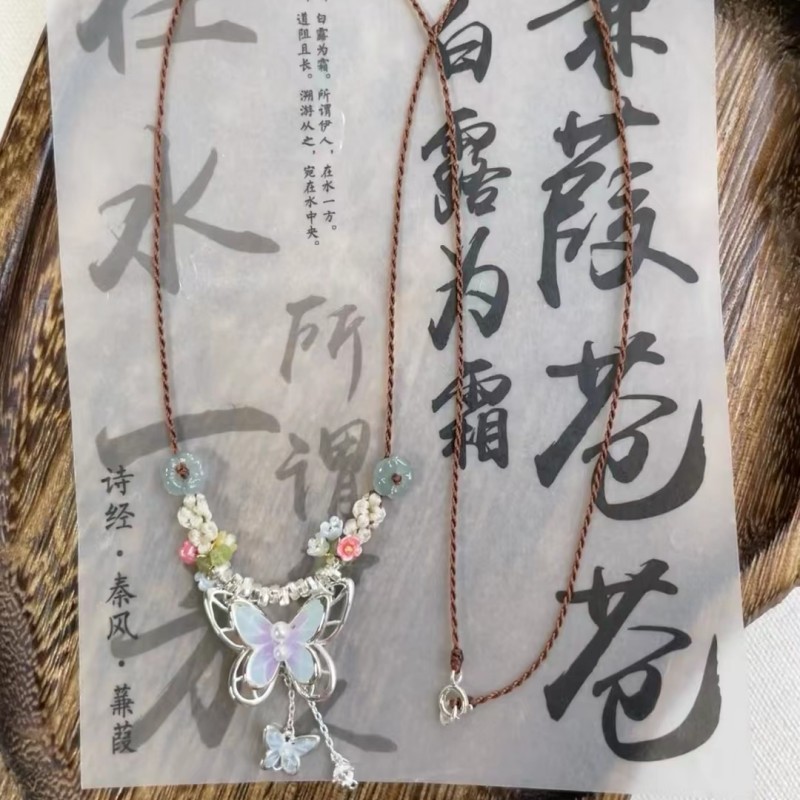 蒹葭苍苍
白露为霜
白露为霜。所谓伊人，在水一方。
道阻且长。溯游从之，宛在水中央。
所谓
在水一方
诗经·秦风·蒹葭